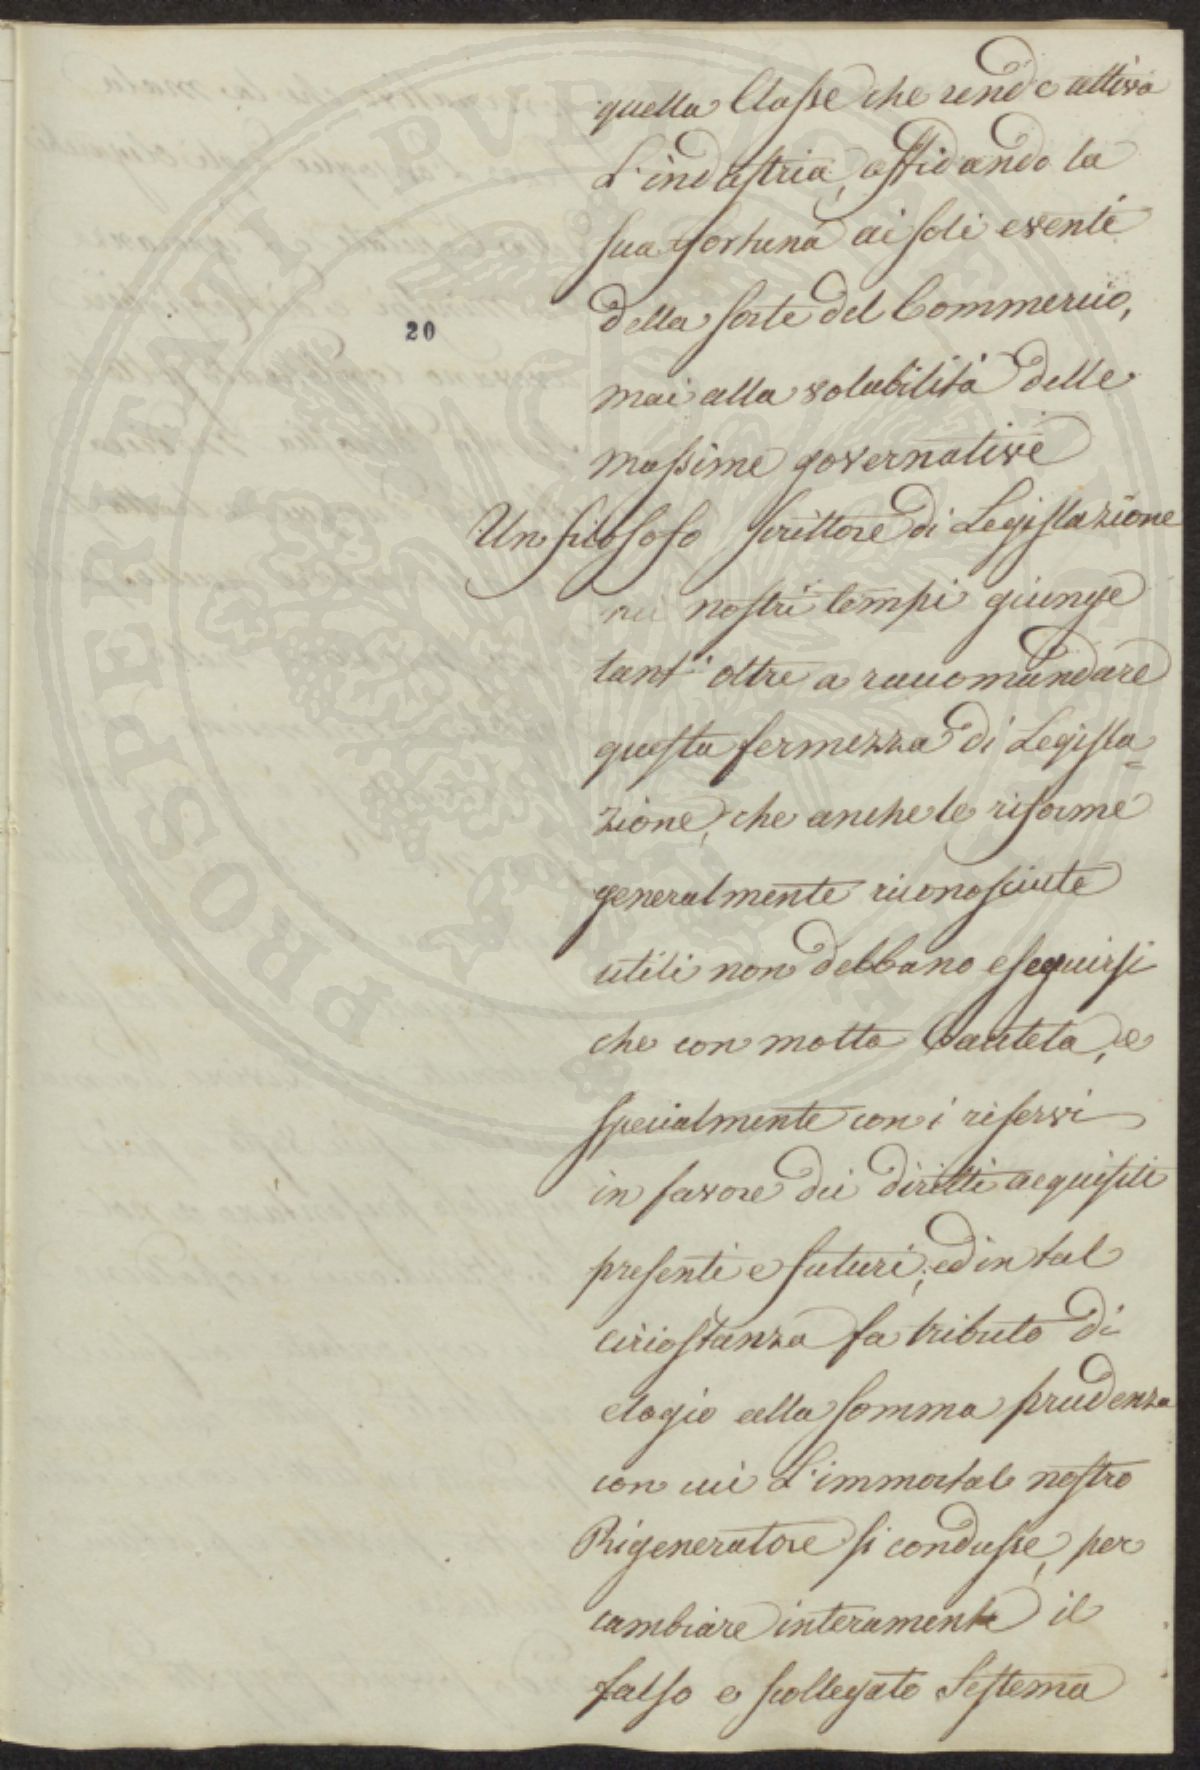 quella Classe che rende attiva
L'industria, affidando la
sua fortuna ai soli eventi
della sorte del Commercio,
20
mai alla volubilità delle
massime governative
Un filosofo scrittore di Legislazione
nei nostri tempi giunge
tant' oltre a raccomandare
questa fermezza di Legisla=
zione, che anche le riforme
generalmente riconosciute
utili non debbano eseguirsi
che con molta Cautela, e
specialmente con i riservi
in favore dei diritti acquisiti
presenti e futuri; ed in tal
circostanza fa tributo di
elogio alla somma prudenza
con cui L'immortal nostro
Rigeneratore si condusse, per
cambiare interamente il
falso e scollegato Sistema
PROSPERITATI PVBLICAE